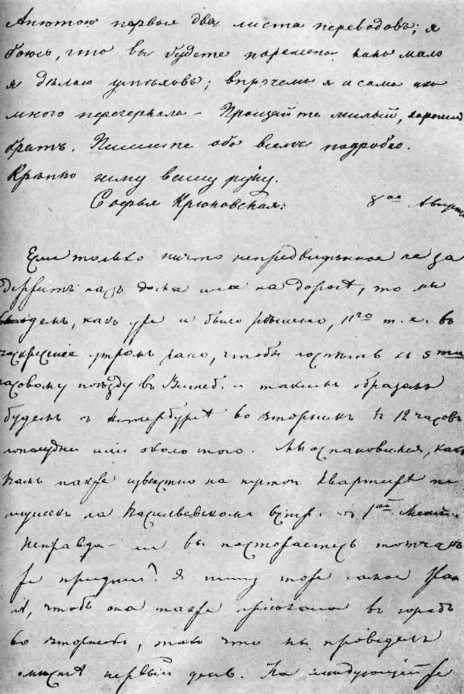 Анютою первые два листа переводовъ; я
боюсь, что вы будете поражены какъ мало
я дѣлаю успѣховъ; впрочемъ я и сама
много перечеркала – Прощайте милый, хорошій
братъ. Пишите обо всемъ подробно.
Крѣпко жму вашу руку.
Софья Крюковская.
8ое Августа
Если только ничто непредвидѣнное не за
держитъ насъ дома или на дорогѣ, то мы
выѣдемъ, какъ уже и было рѣшено, 11го т.е. въ
воскресенье утромъ рано, чтобы поспѣть къ 5ти
часовому поѣзду въ Витеб. и такимъ образомъ
будемъ въ Петербургѣ во вторникъ въ 12 часовъ
пополудни или около того. Мы остановимся, какъ
вамъ также извѣстно на пустой квартирѣ те
тушекъ на Васильевскомъ Остр. въ 1ой
Неправда – ли вы постараетесь тотчасъ
же придти? Я пишу тоже
чтобъ она также пріѣхала въ городъ
во вторникъ, такъ что мы проведемъ
вмѣстѣ первый день. На слѣдующій же